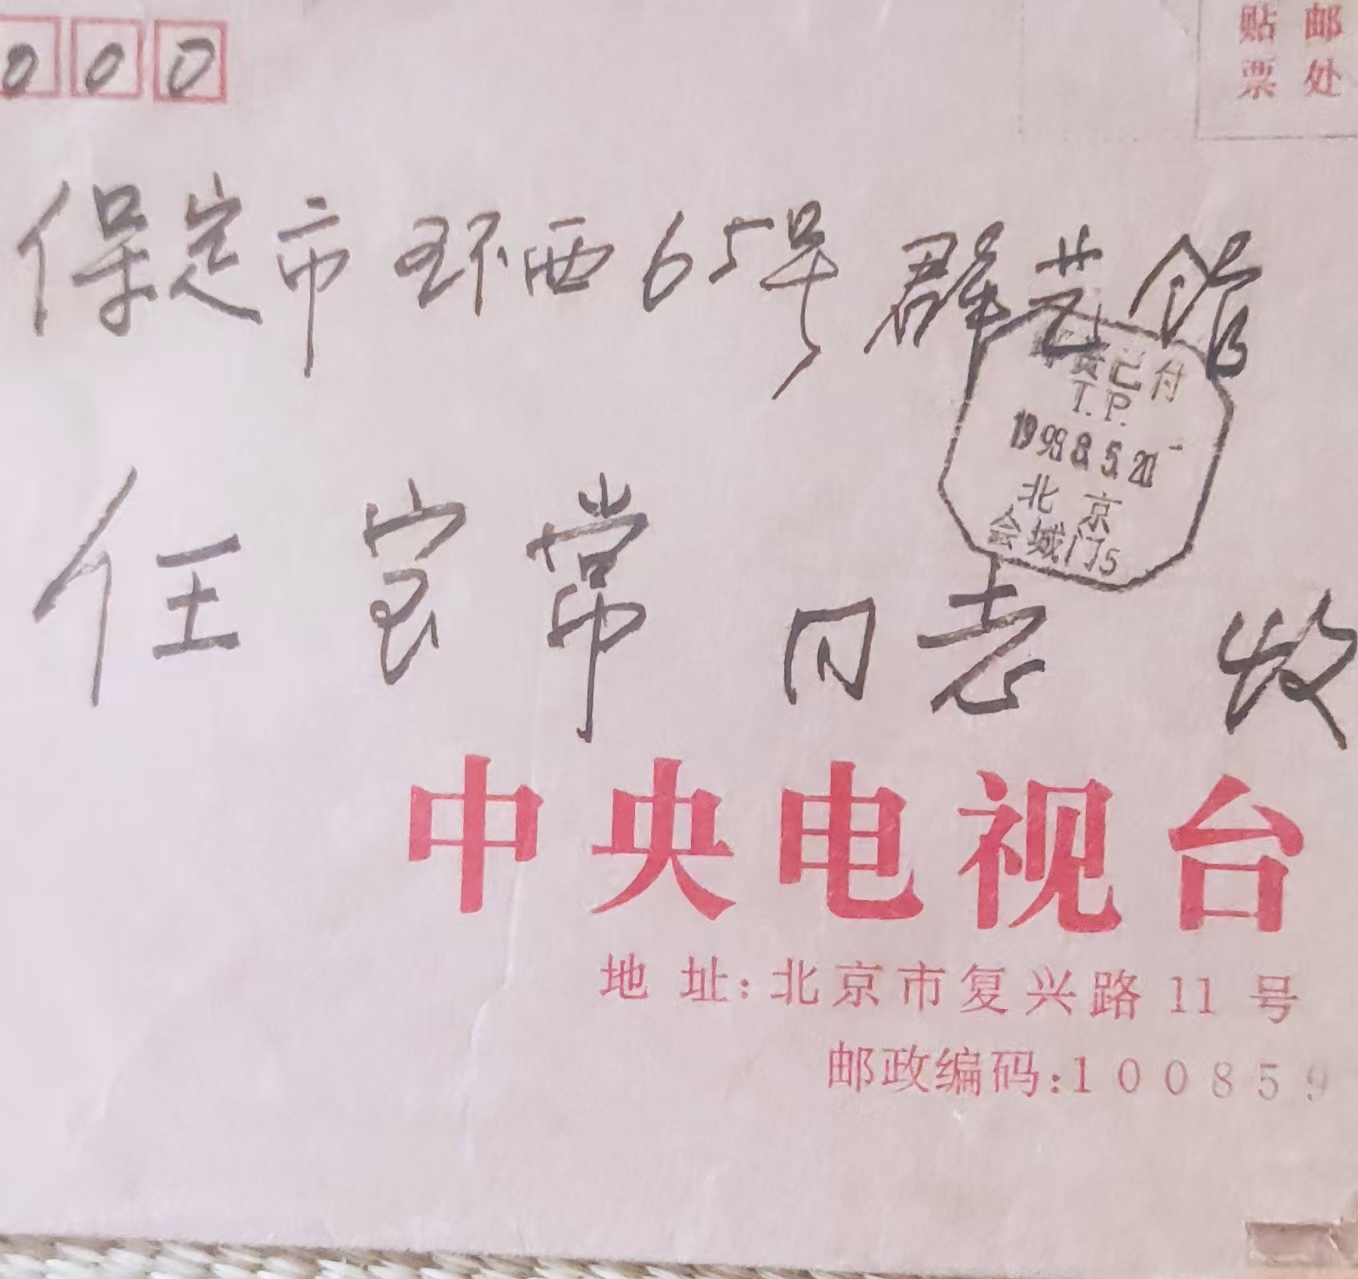 000
贴邮
票处
保定市环西65号群艺馆
任良常同志 收
邮资已付
T.P.
1998.5.20
北京
会城门5
中央电视台
地址:北京市复兴路11号
邮政编码:100859